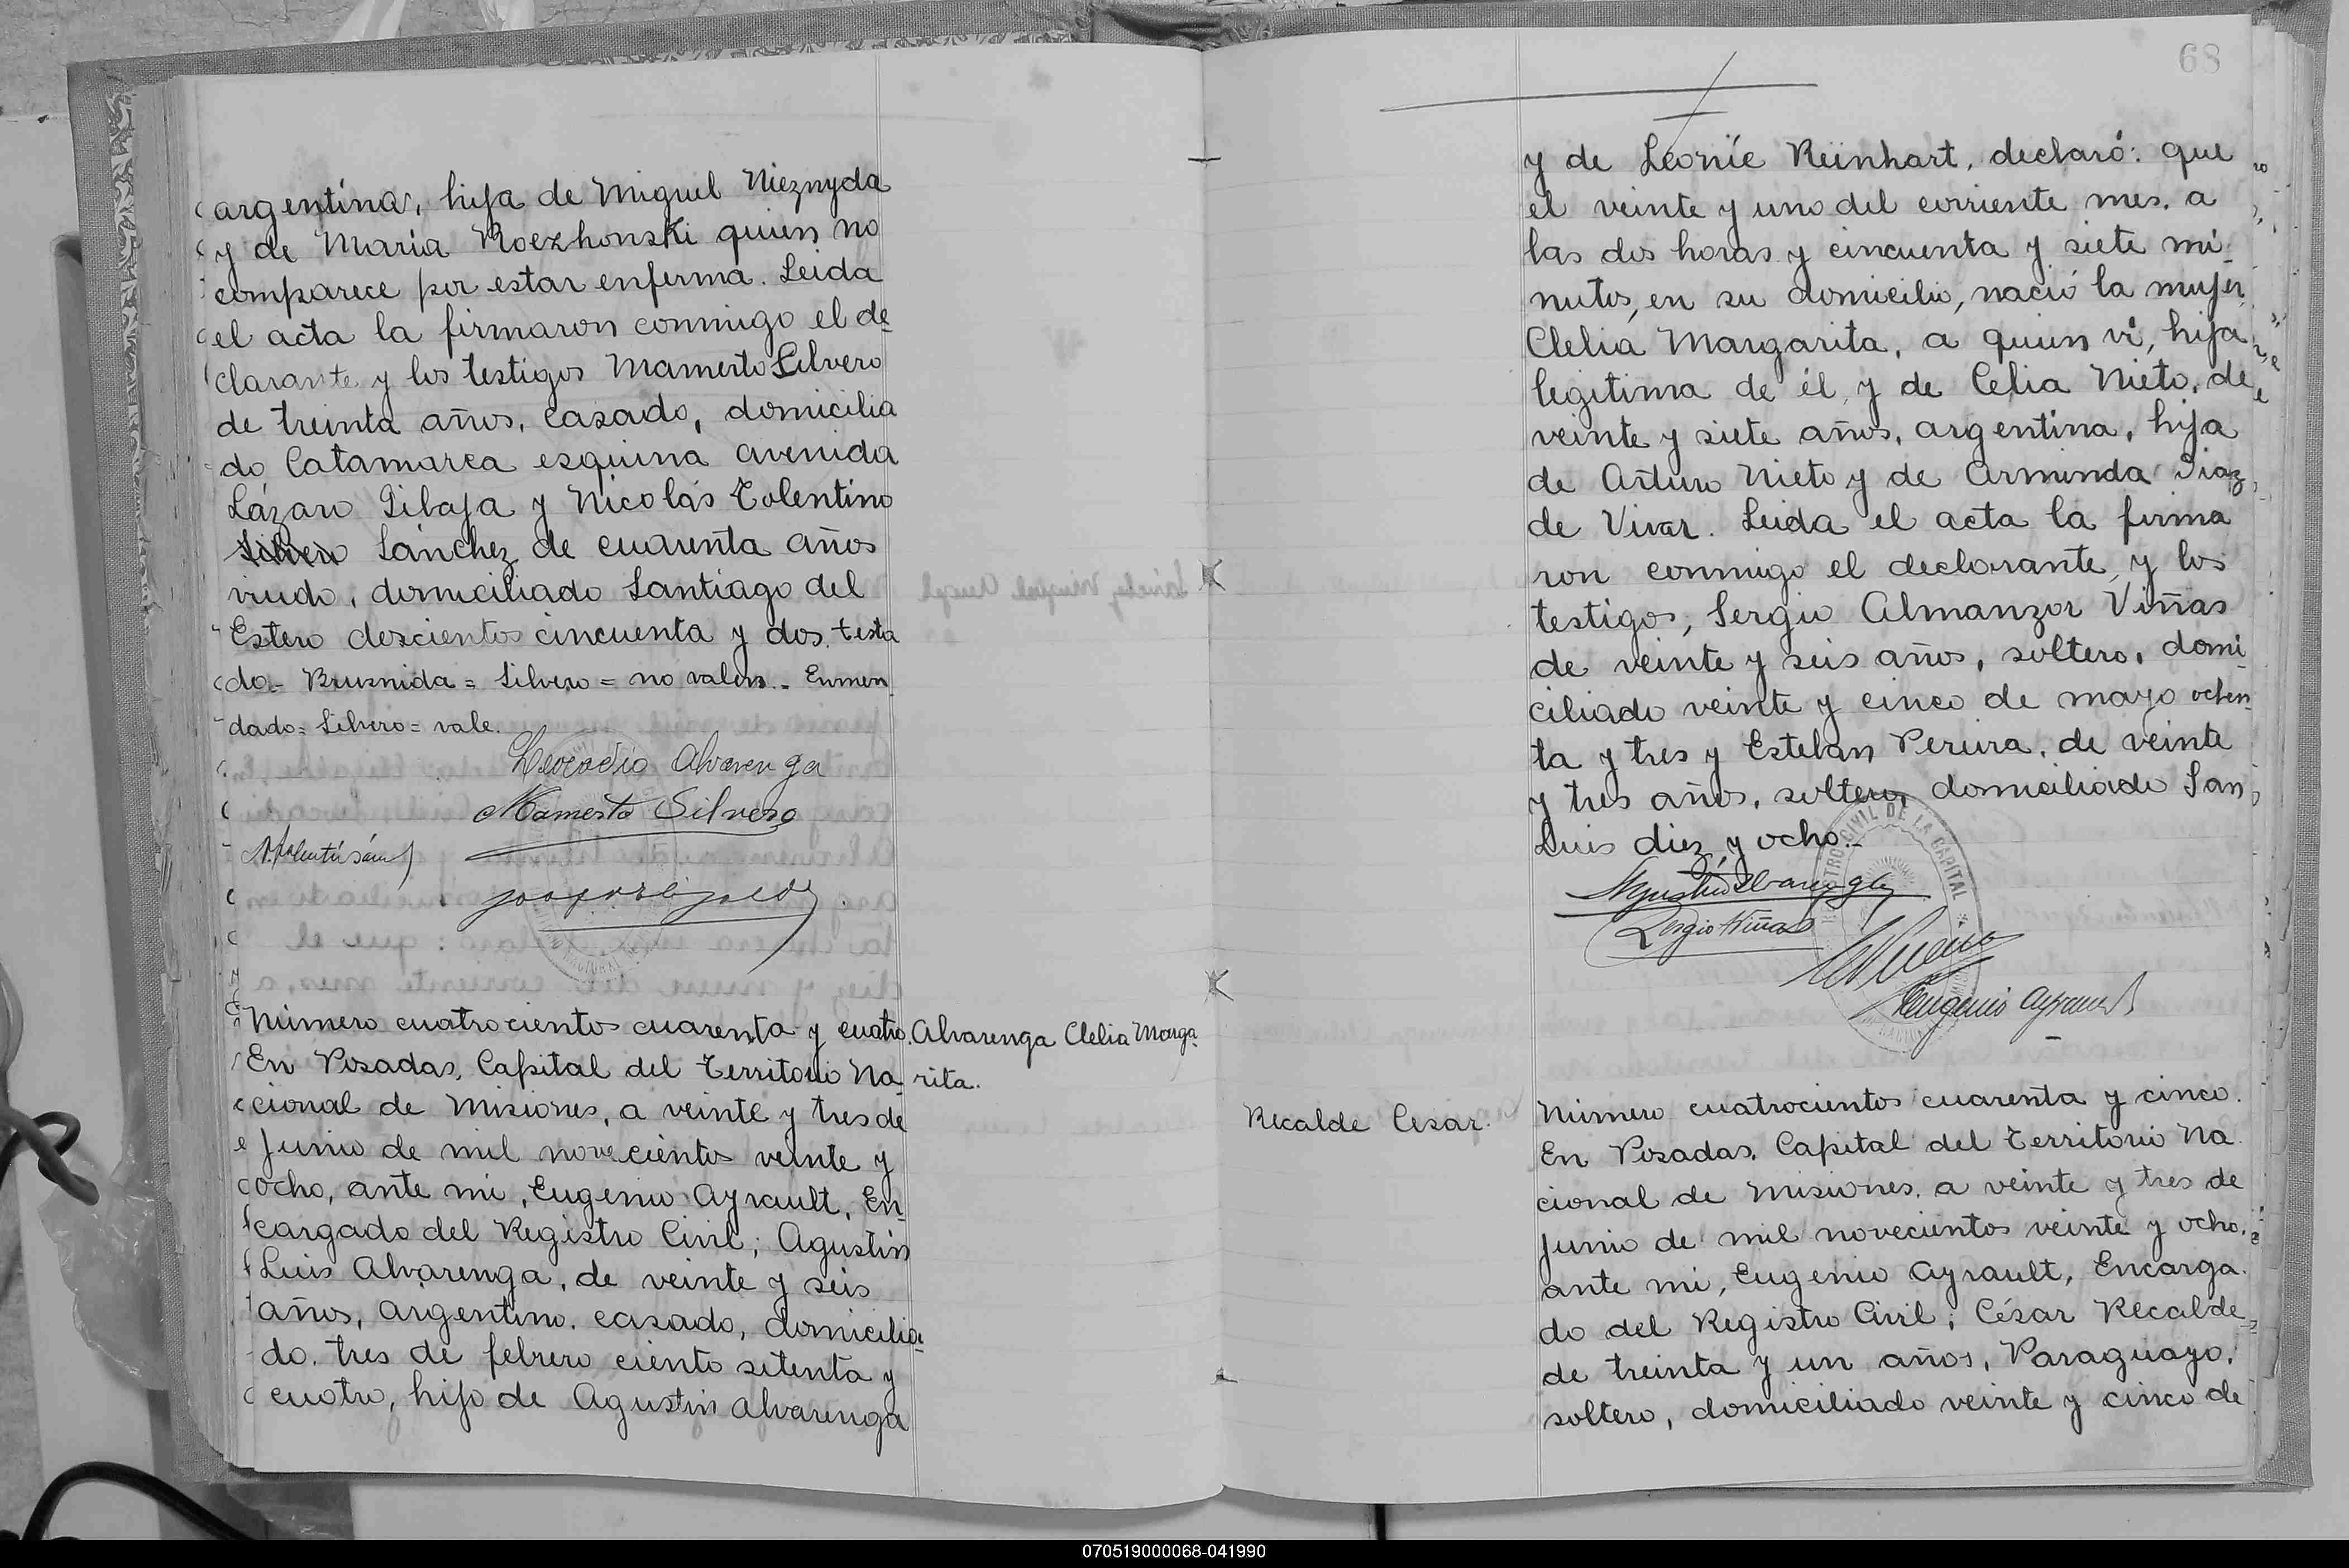 argentina, hija de Miguel Nieznyda
y de María Roezhonski quien no
comparece por estar enferma. Leida
el acta la firmaron conmigo el de
clarante y los testigos Mamerto Silvero
de treinta años, casado, domicilia
do Catamarca esquina avenida
Lázaro Gibaja y Nicolás Tolentino
Silvero Sánchez de cuarenta años
viudo, domiciliado Santiago del
Estero doscientos cincuenta y dos. testa
do = Brusnida = Silvero = no valen. Enmen
dado = Silvero = vale.
Leocadio Alvarenga
Mamerto Silvero
Número cuatrocientos cuarenta y cuatro.
Alvarenga Clelia Marga
rita.
En Posadas, Capital del Territorio Na
cional de Misiones, a veinte y tres de
Junio de mil novecientos veinte y
ocho, ante mi, Eugenio Ayrault, En
cargado del Registro Civil; Agustin
Luis Alvarenga, de veinte y seis
años, argentino, casado, domicilia
do, tres de febrero ciento setenta y
cuatro, hijo de Agustin Alvarenga
68
y de Leonie Reinhart, declaró: que
el veinte y uno del corriente mes, a
las dos horas y cincuenta y siete mi
nutos, en su domicilio, nació la mujer
Clelia Margarita, a quien vi, hija
legitima de él y de Celia Nieto, de
veinte y siete años, argentina, hija
de Arturo Nieto y de Arminda Diaz
de Vivar. Leida el acta la firma
ron conmigo el declarante, y los
testigos, Sergio Almanzor Viñas
de veinte y seis años, soltero, domi
ciliado veinte y cinco de mayo ochen
ta y tres y Esteban Pereira, de veinte
y tres años, soltero, domiciliado San
Luis diez y ocho.-
REGISTRO CIVIL DE LA CAPITAL
Sergio Viñas
Eugenio Ayrault
Recalde Cesar.
Número cuatrocientos cuarenta y cinco.
En Posadas, Capital del Territorio Na
cional de Misiones, a veinte y tres de
Junio de mil novecientos veinte y ocho,
ante mi, Eugenio Ayrault, Encarga
do del Registro Civil; César Recalde
de treinta y un años, Paraguayo,
soltero, domiciliado veinte y cinco de
070519000068-041990